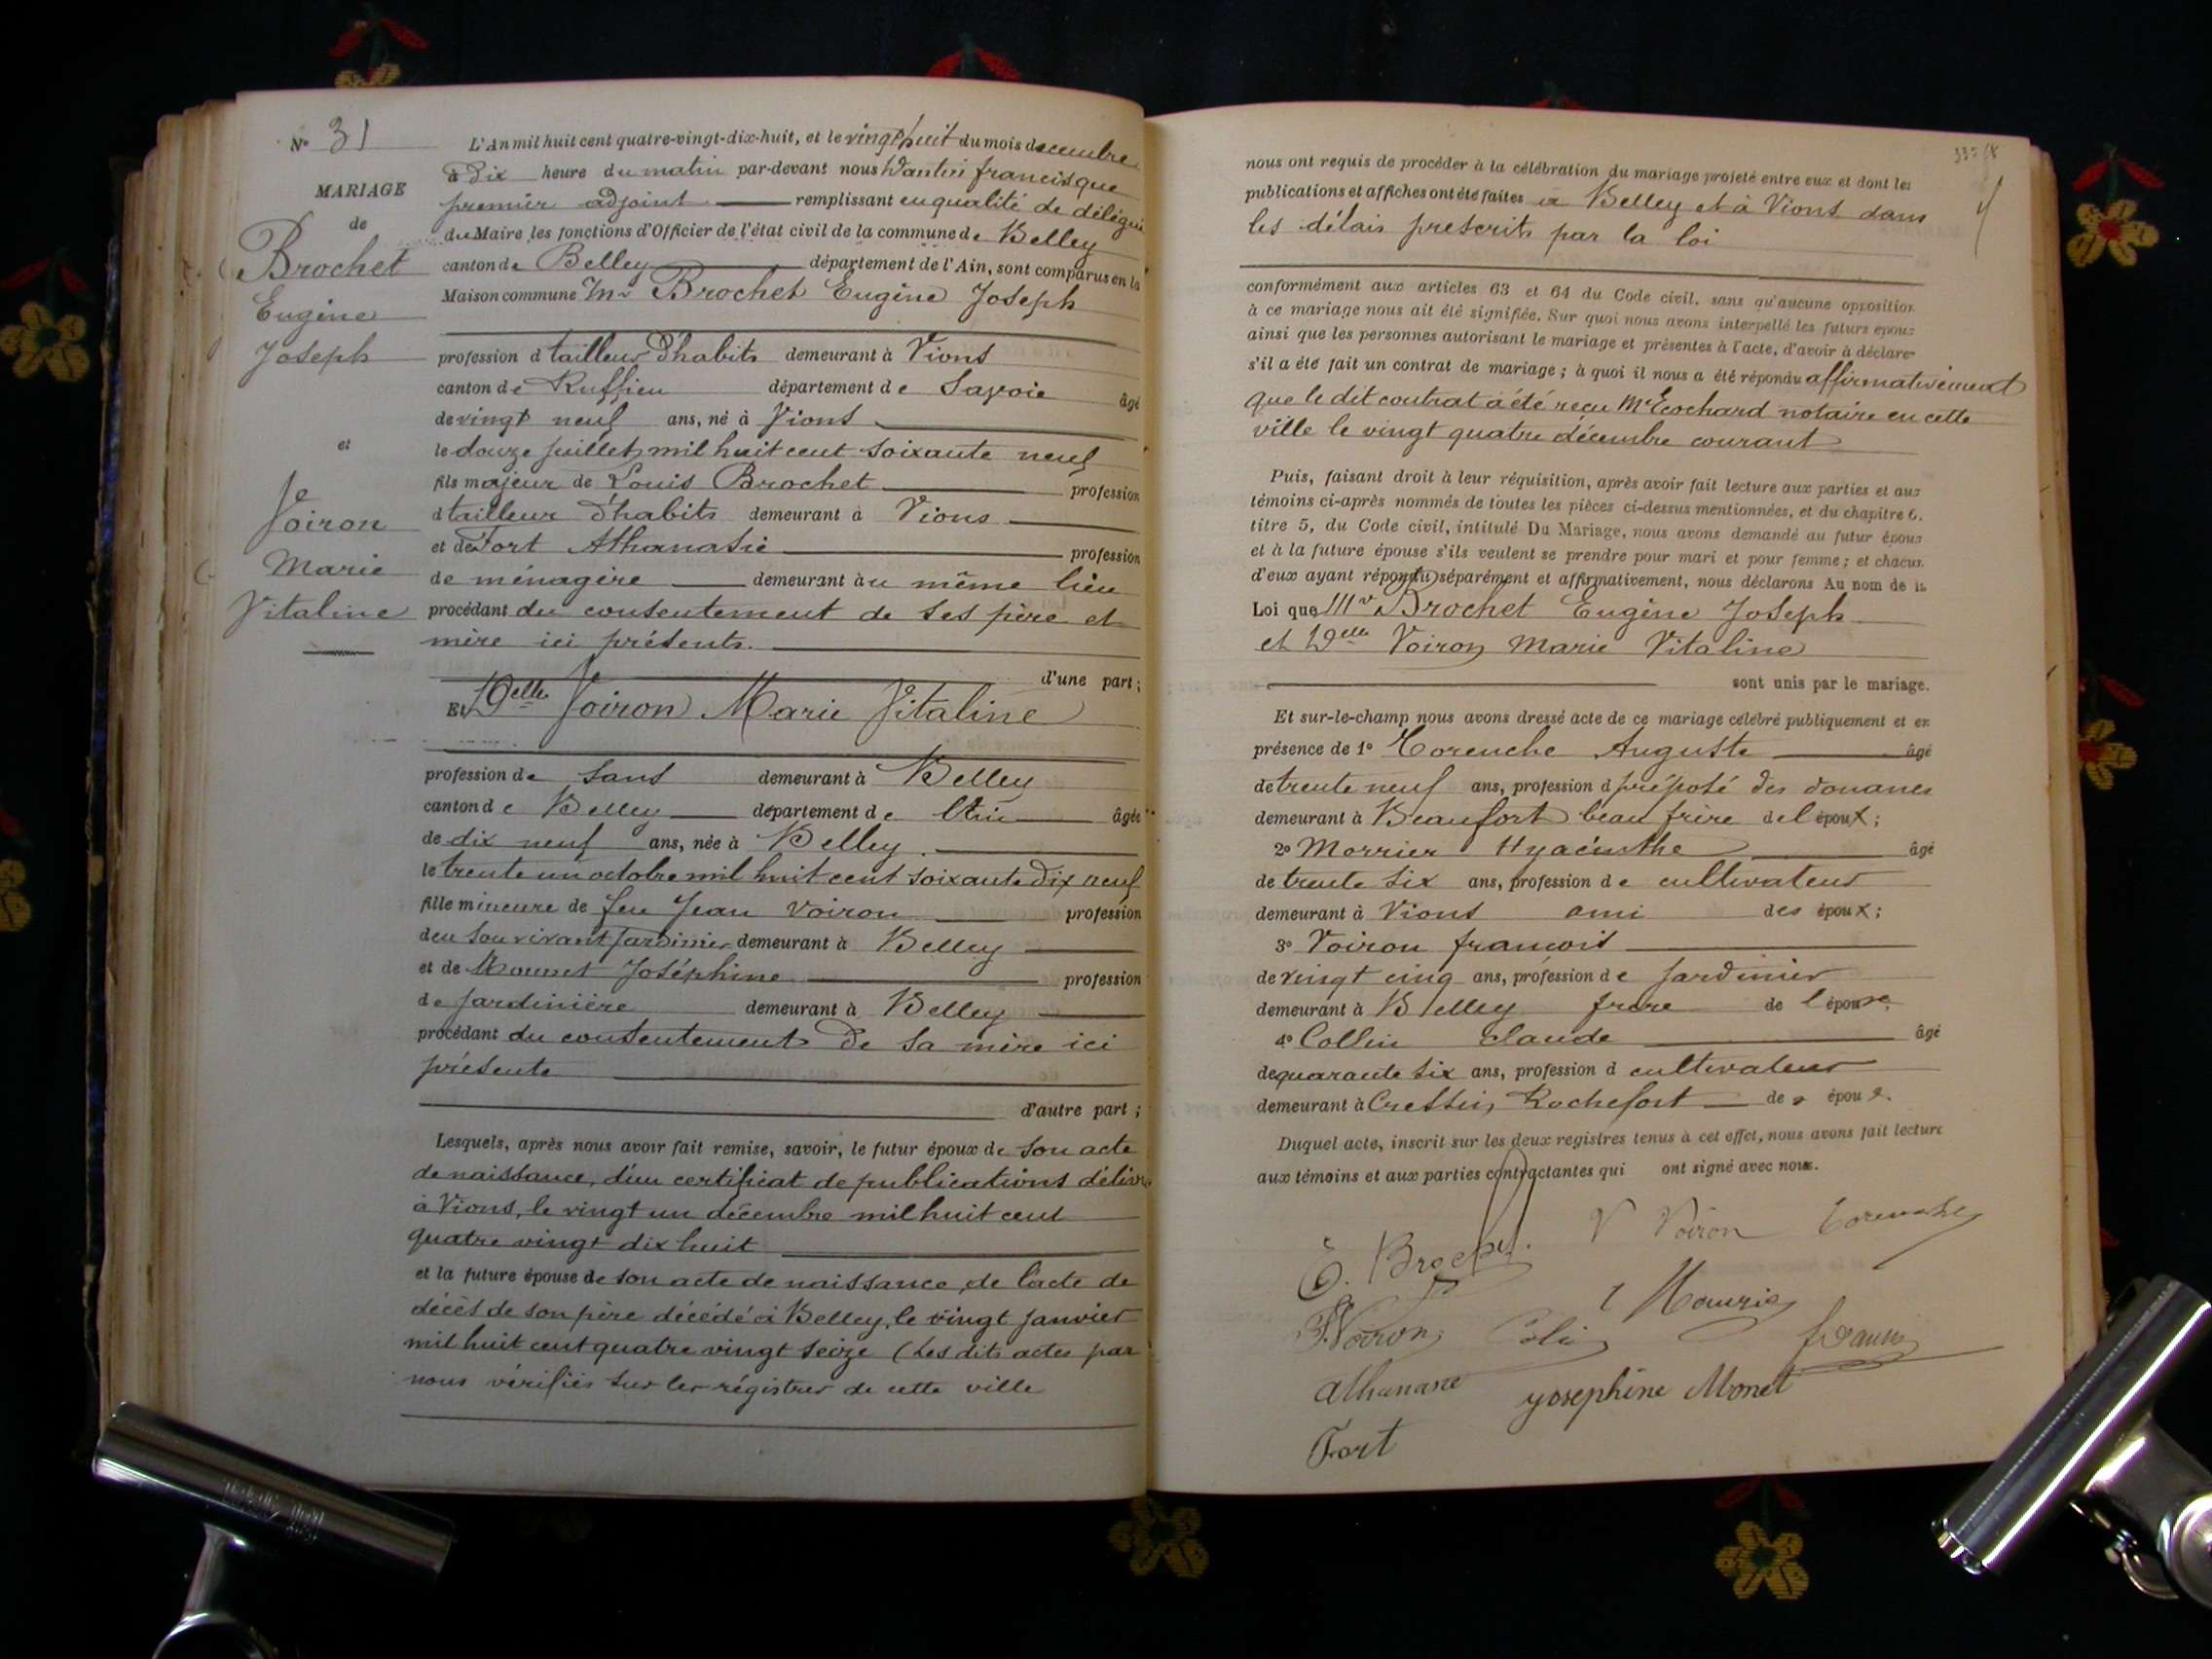 N° 31
MARIAGE
de
Brochet
Eugène
Joseph
et
Voiron
Marie
Vitaline
L'An mil huit cent quatre-vingt-dix-huit, et le vingt huit du mois decembre
à Dix heure du matin par-devant nous Dantin francisque
premier adjoint remplissant en qualité de délégué
du Maire les fonctions d'Officier de l'état civil de la commune de Belley
canton de Belley département de l'Ain, sont comparus en la
Maison commune Mr Brochet Eugène Joseph
profession d tailleur d'habits demeurant à Vions
canton de Ruffieu département de Savoie âgé
de vingt neuf ans, né à Vions
le douze juillet mil huit cent soixante neuf
fils majeur de Louis Brochet profession
d tailleur d'habits demeurant à Vions
et de Fort Athanasie profession
de ménagère demeurant au même lieu
procédant du consentement de ses père et
mère ici présents.
d'une part;
Et Delle Voiron Marie Vitaline
profession de sans demeurant à Belley
canton de Belley département de l'Ain âgée
de dix neuf ans, née à Belley
le trente un octobre mil huit cent soixante dix neuf
fille mineure de feu Jean Voiron profession
de son vivant jardinier demeurant à Belley
et de Joséphine profession
de jardinière demeurant à Belley
procédant du consentement de sa mère ici
présente
d'autre part;
Lesquels, après nous avoir fait remise, savoir, le futur époux de son acte
de naissance, d'un certificat de publications délivré
à Vions, le vingt un décembre mil huit cent
quatre vingt dix huit
et la future épouse de son acte de naissance, de l'acte de
décès de son père décédé à Belley, le vingt janvier
mil huit cent quatre vingt seize (Les dits actes par
nous vérifiés sur les régistres de cette ville
nous ont requis de procéder à la célébration du mariage projeté entre eux et dont les
publications et affiches ont été faites à Belley et à Vions dans
les délais prescrits par la loi
conformément aux articles 63 et 64 du Code civil. sans qu'aucune opposition
à ce mariage nous ait été signifiée. Sur quoi nous avons interpellé les futurs époux
ainsi que les personnes autorisant le mariage et présentes à l'acte, d'avoir à déclarer
s'il a été fait un contrat de mariage; à quoi il nous a été répondu affirmativement
que le dit contrat a été reçu Me Ecochard notaire en cette
ville le vingt quatre décembre courant
Puis, faisant droit à leur réquisition, après avoir fait lecture aux parties et aux
témoins ci-après nommés de toutes les pièces ci-dessus mentionnées, et du chapitre 6.
titre 5, du Code civil, intitulé Du Mariage, nous avons demandé au futur époux
et à la future épouse s'ils veulent se prendre pour mari et pour femme; et chacun
d'eux ayant répondu séparément et affirmativement, nous déclarons Au nom de la
Loi que Mr Brochet Eugène Joseph
et Delle Voiron Marie Vitaline
sont unis par le mariage.
Et sur-le-champ nous avons dressé acte de ce mariage célébré publiquement et en
présence de 1° Corenche Auguste âgé
de trente neuf ans, profession d préposé des douanes
demeurant à Beaufort beau frère de l époux;
2° Morrier Hyacinthe âgé
de trente six ans, profession de cultivateur
demeurant à Vions ami des époux;
3° Voiron francois
de vingt cinq ans, profession de jardinier
demeurant à Belley frère de l épouse
4° Collin Claude âgé
de quarante six ans, profession d cultivateur
demeurant à Cressin Rochefort de épou
Duquel acte, inscrit sur les deux registres tenus à cet effet, nous avons fait lecture
aux témoins et aux parties contractantes qui ont signé avec nous.
E. Brochet V Voiron Corenche
F. Voiron
Athanase Josephine Monet
Fort